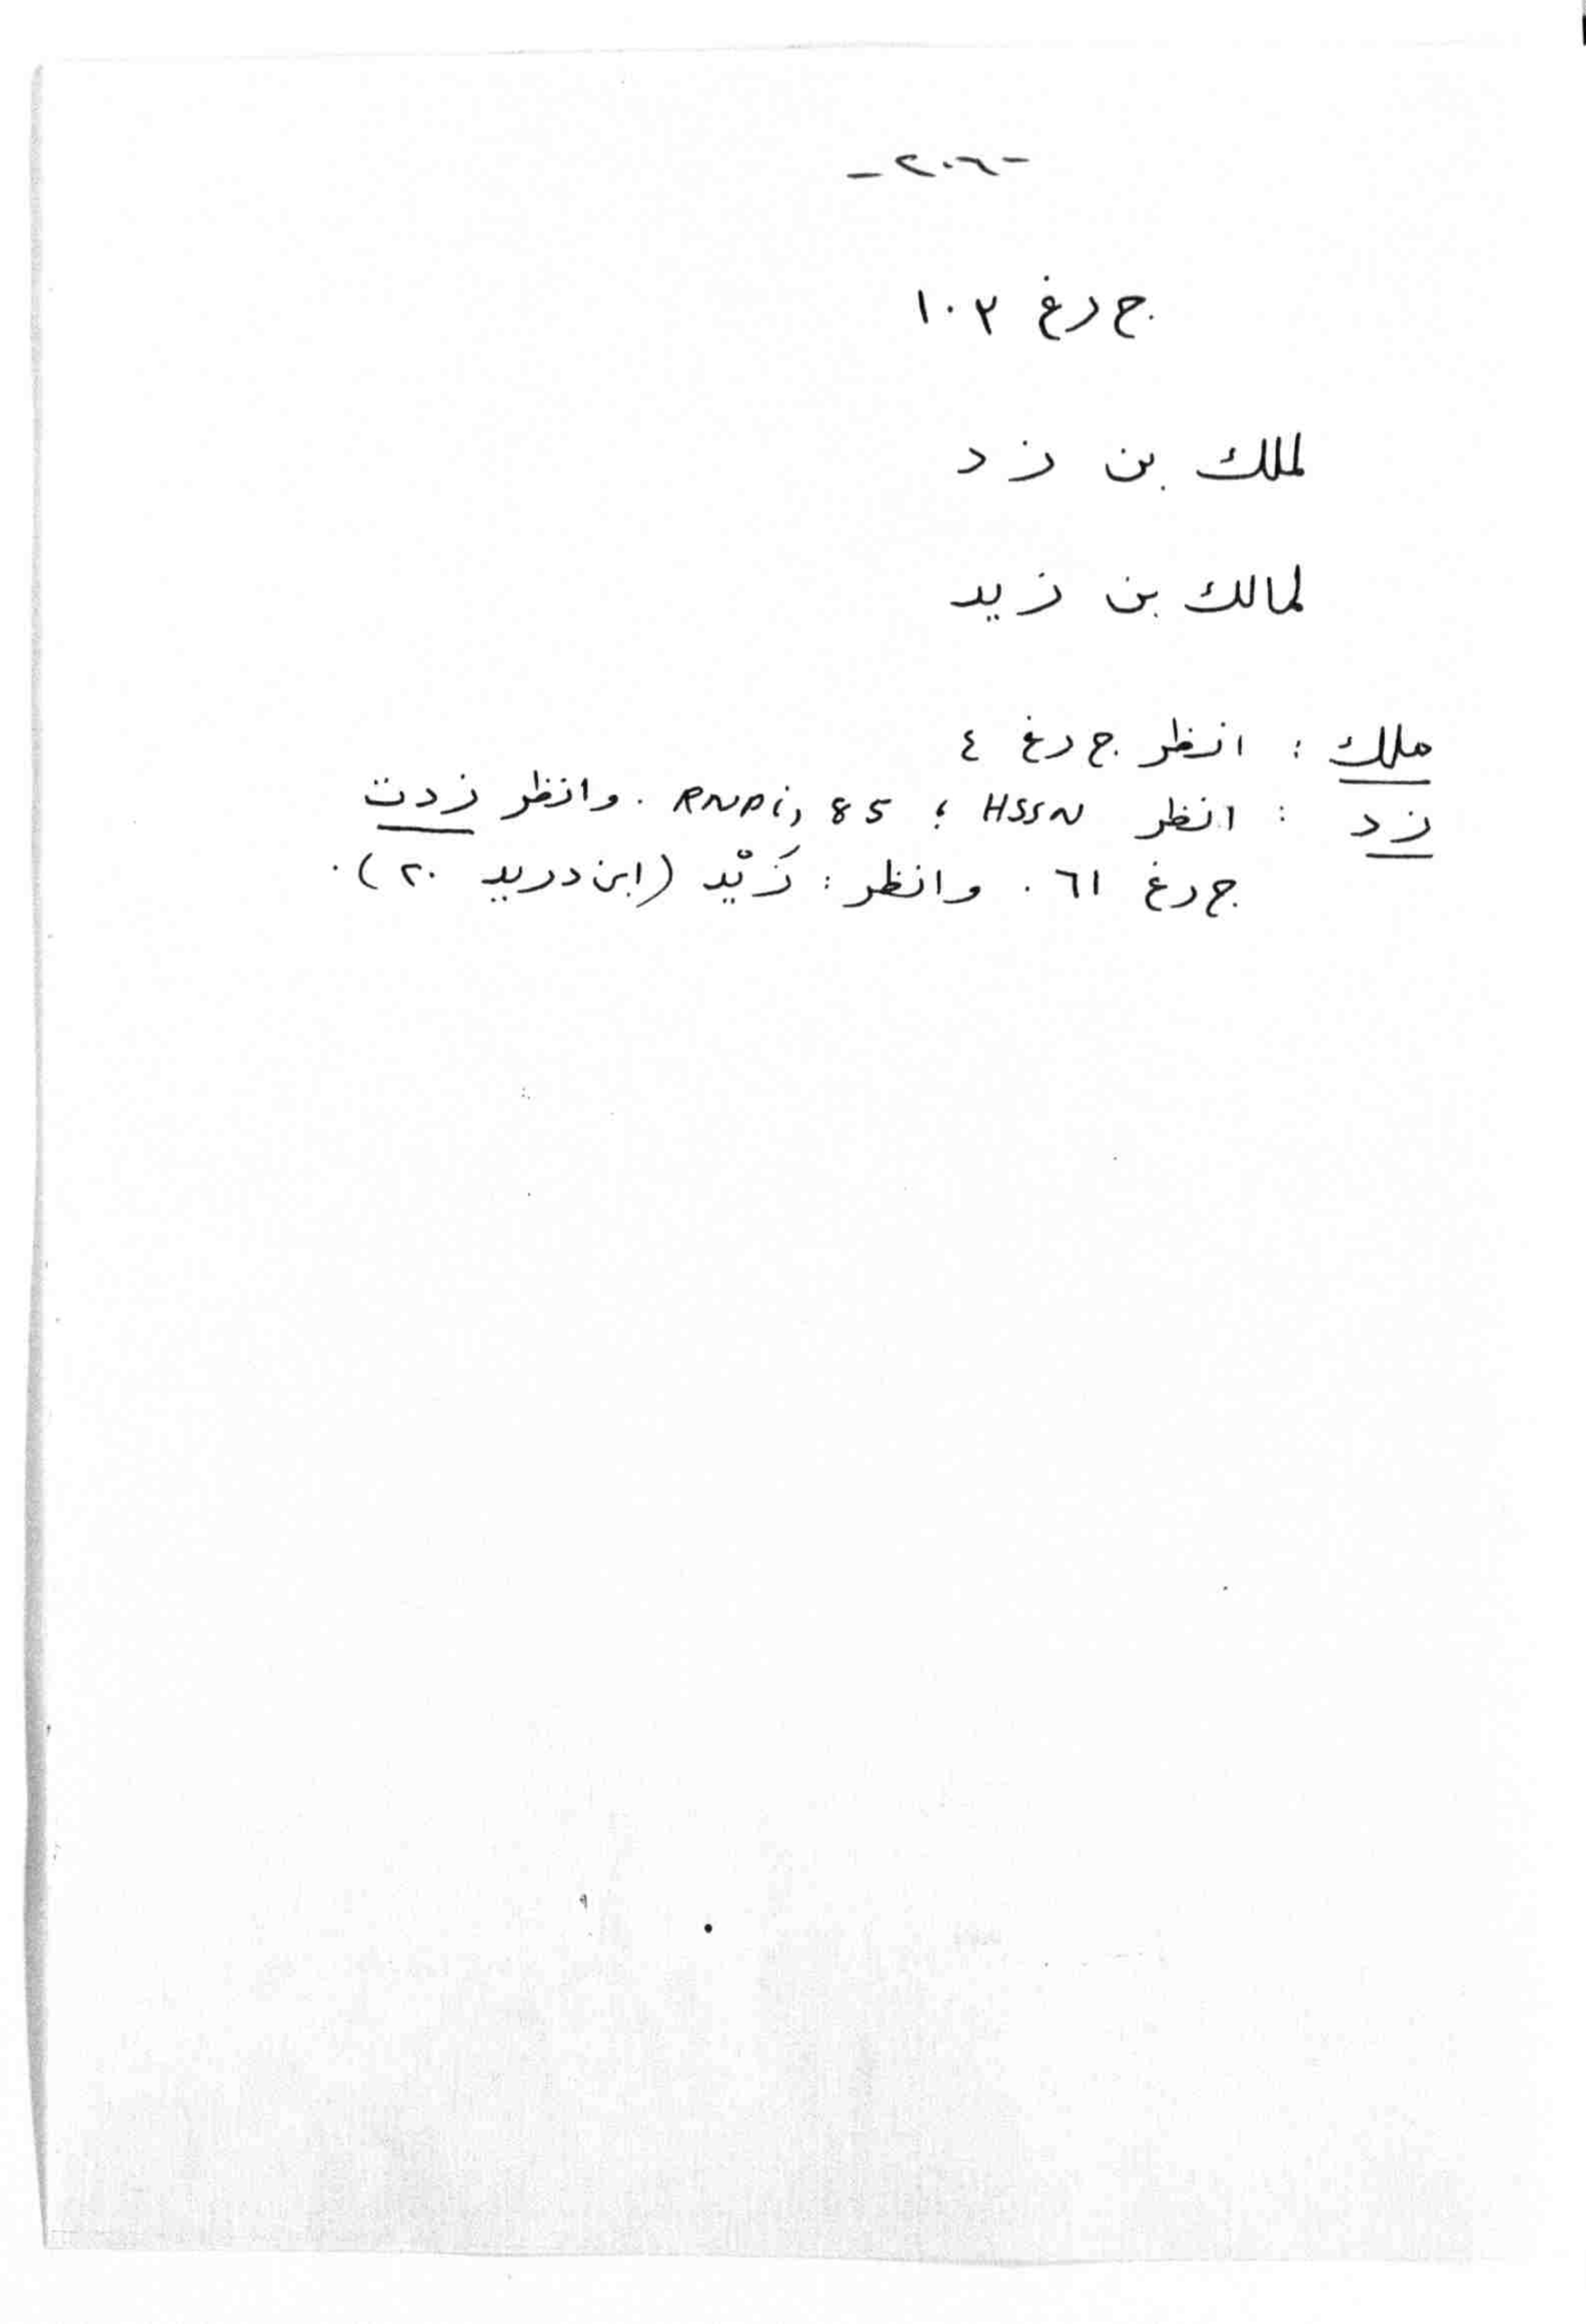 -٢٠٦-
ج رغ ١٠٣
لملك بن زد
لمالك بن زيد
ملك : انظر ج رغ ٤
زد : انظر HSSN ؛ RNPi, 85 . وانظر زدت
ج رغ ٦١ . وانظر : زَيْد (ابن دريد ٢٠).